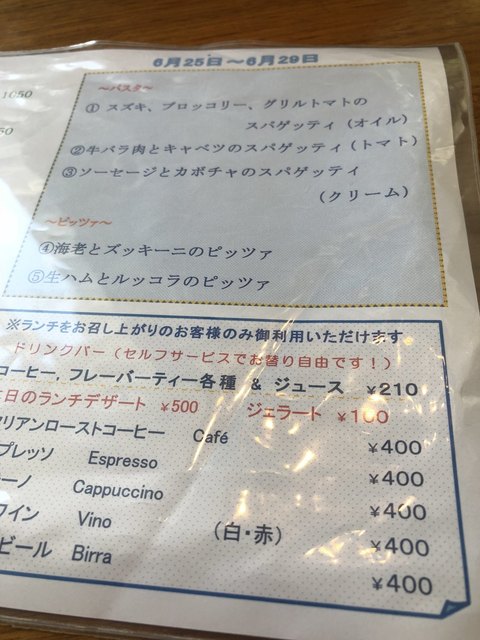 6月25日～6月29日
1050
50
～パスタ～
① スズキ、ブロッコリー、グリルトマトの
スパゲッティ（オイル）
②牛バラ肉とキャベツのスパゲッティ（トマト）
③ソーセージとカボチャのスパゲッティ
（クリーム）
～ピッツァ～
④海老とズッキーニのピッツァ
⑤生ハムとルッコラのピッツァ
※ランチをお召し上がりのお客様のみ御利用いただけます
ドリンクバー（セルフサービスでお替り自由です！）
コーヒー, フレーバーティー各種 & ジュース ¥210
日のランチデザート ¥500 ジェラート ¥100
リアンローストコーヒー Café ¥400
プレッソ Espresso ¥400
ーノ Cappuccino ¥400
ワイン Vino （白・赤） ¥400
ビール Birra ¥400